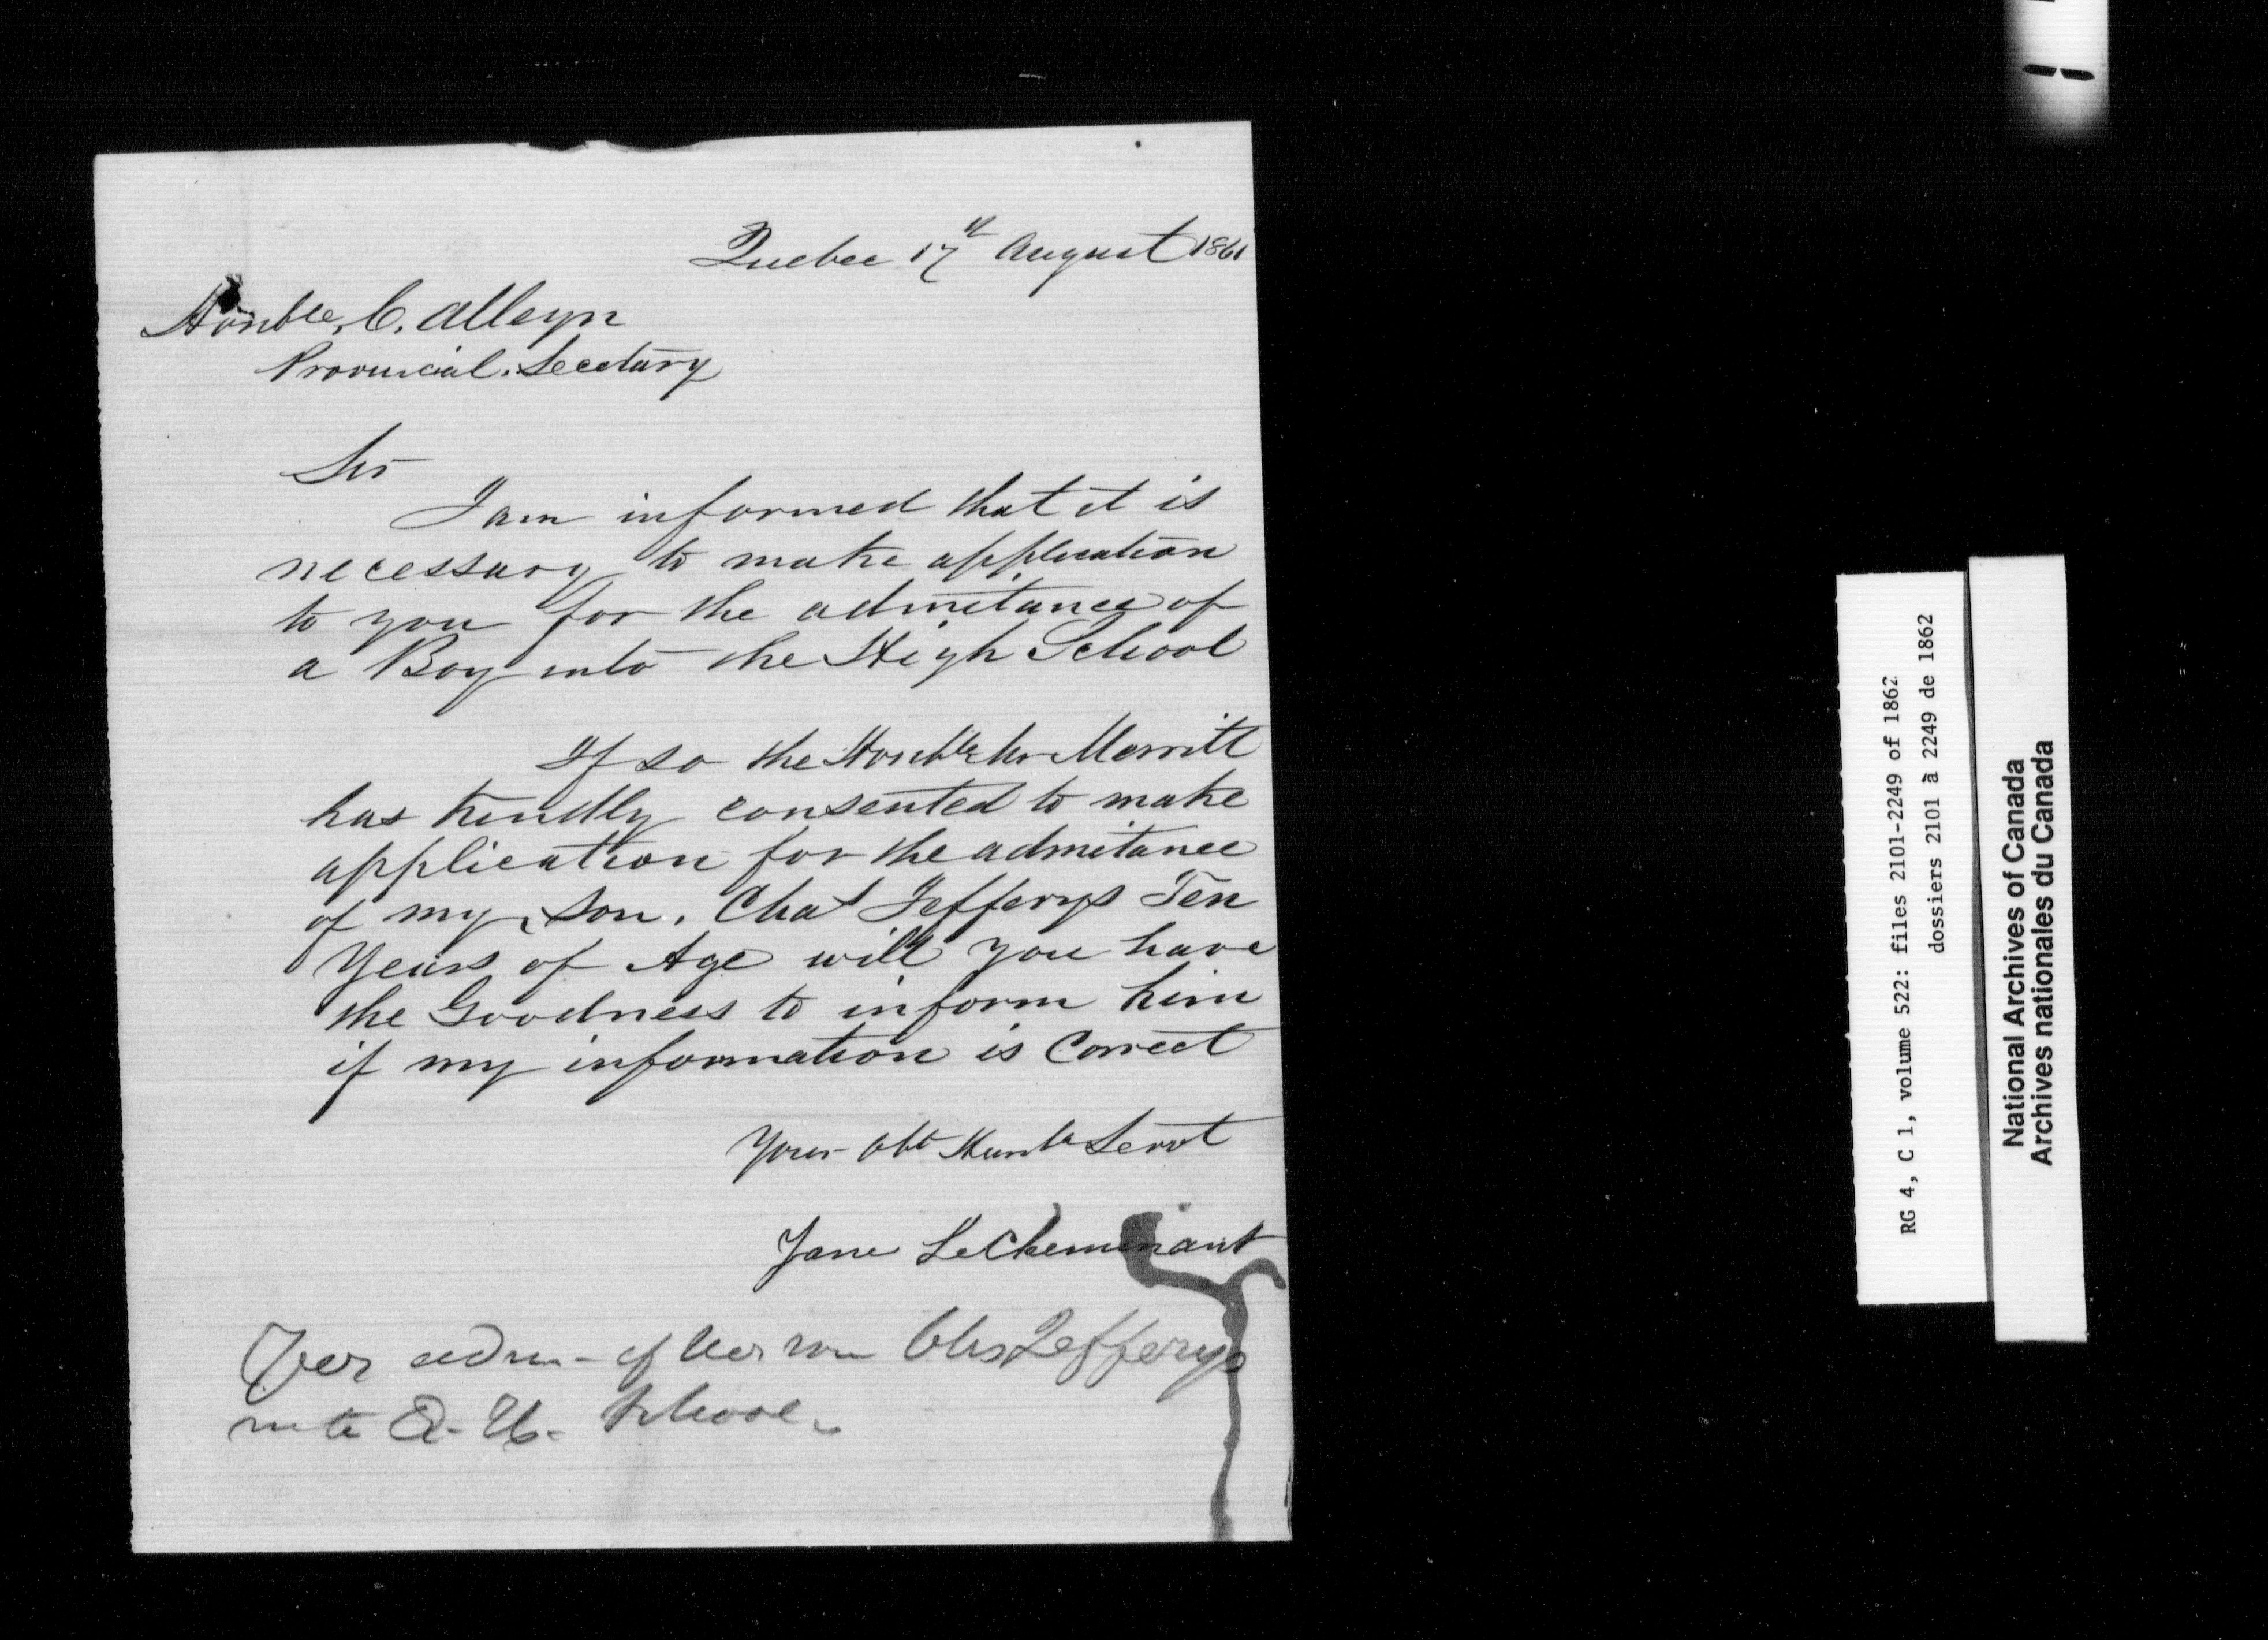 Quebec 17th August 1861
Honble. C. Alleyn
Provincial. Secetary
Sir
I am informed that it is
necessary to make application
to you for the admitance of
a Boy into the High School
If so the Honble Mr Merritt
has kindly consented to make
application for the admitance
of my son. Chas Jefferys Ten
Years of Age will you have
the Goodness to inform him
if my information is Correct
Your Obt Humb Servt
Jane LeCheminant
for adm - of her son Chs Jefferys
into Q. H. School.
RG 4, C 1, volume 522: files 2101-2249 of 1862
dossiers 2101 à 2249 de 1862
National Archives of Canada
Archives nationales du Canada